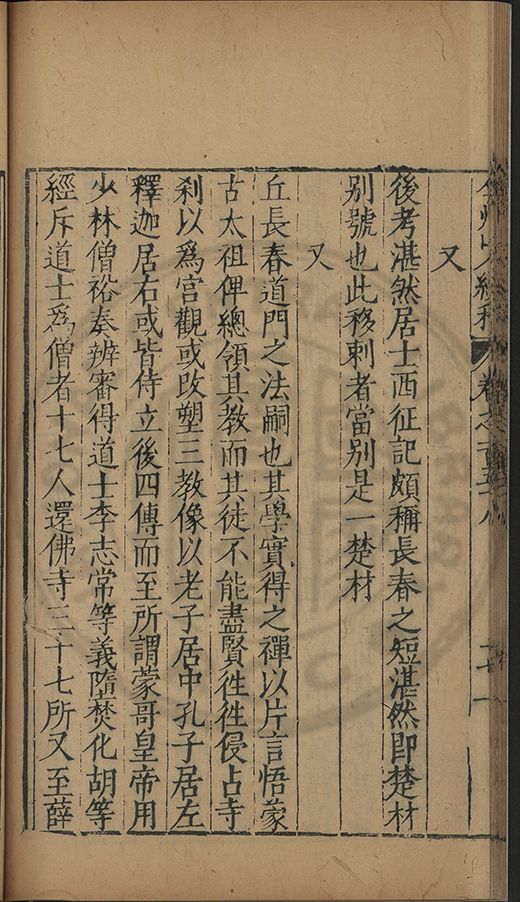 又
後考湛然居士西征記頗稱長春之短湛然即楚材
別號也此移剌者當別是一楚材
又
丘長春道門之法嗣也其學實得之禪以片言悟蒙
古太祖俾總領其教而其徒不能盡賢徃徃侵占寺
刹以爲宮觀或改塑三教像以老子居中孔子居左
釋迦居右或皆侍立後四傳而至所謂蒙哥皇帝用
少林僧裕奏辨審得道士李志常等義隋焚化胡等
經斥道士爲僧者十七人還佛寺三十七所又至薛